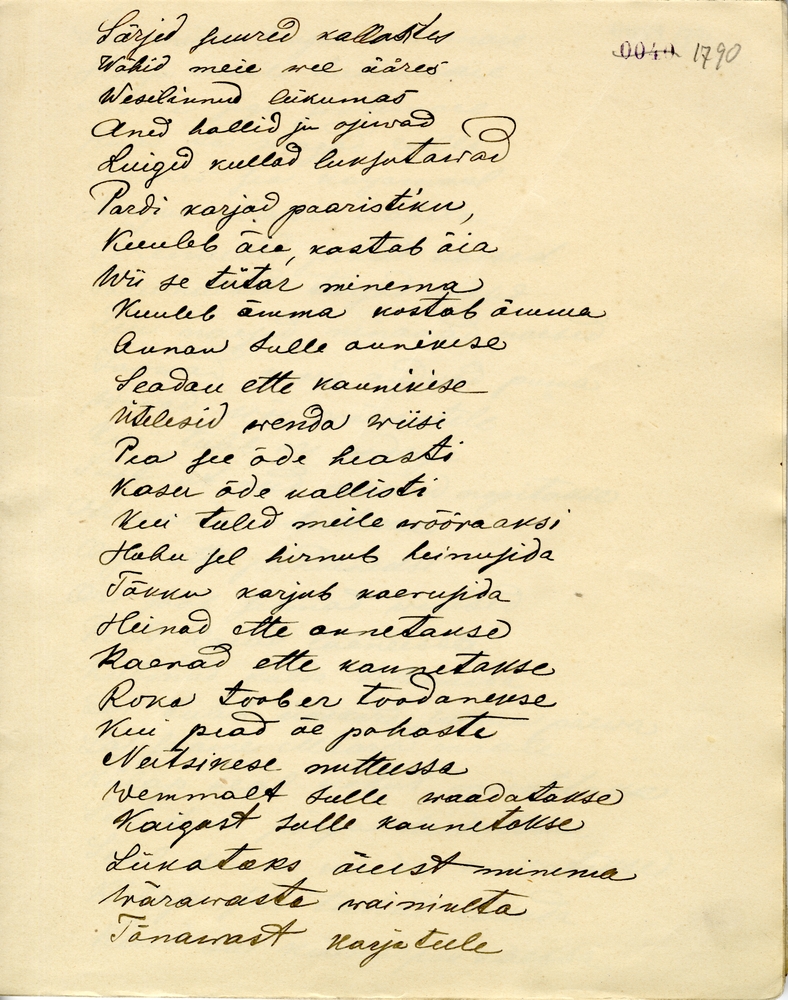 0040 1790
Särjed suured kallastes
Wähid meie wee ääres
Wesilinnud liikumas
Aned hallid ju ojuwad
Luiged kullad luksutawad
Pardi karjad paaristiku,
Kuuleb äia, kostab äia
Wii se tütar minema
Kuuleb ämma kostab ämma
Annan sulle aunikese
Seadan ette kaunikese
Ütelesid wenda wiisi
Pea see õde heasti
Kasu õde kallisti
Kui tuled meile wõõraaksi
Hobu sel hirnub heinusida
Täkku karjub kaerusida
Heinad ette annetakse
Kaerad ette kannetakse
Roka toober toodanekse
Kui pead õe pahaste
Neitsikese nuttussa
Wemmalt sulle waadatakse
Kaigast sulle kannetakse
Lükataks õuest minema
Wärawasta wainiulta
Tänawast karja teele